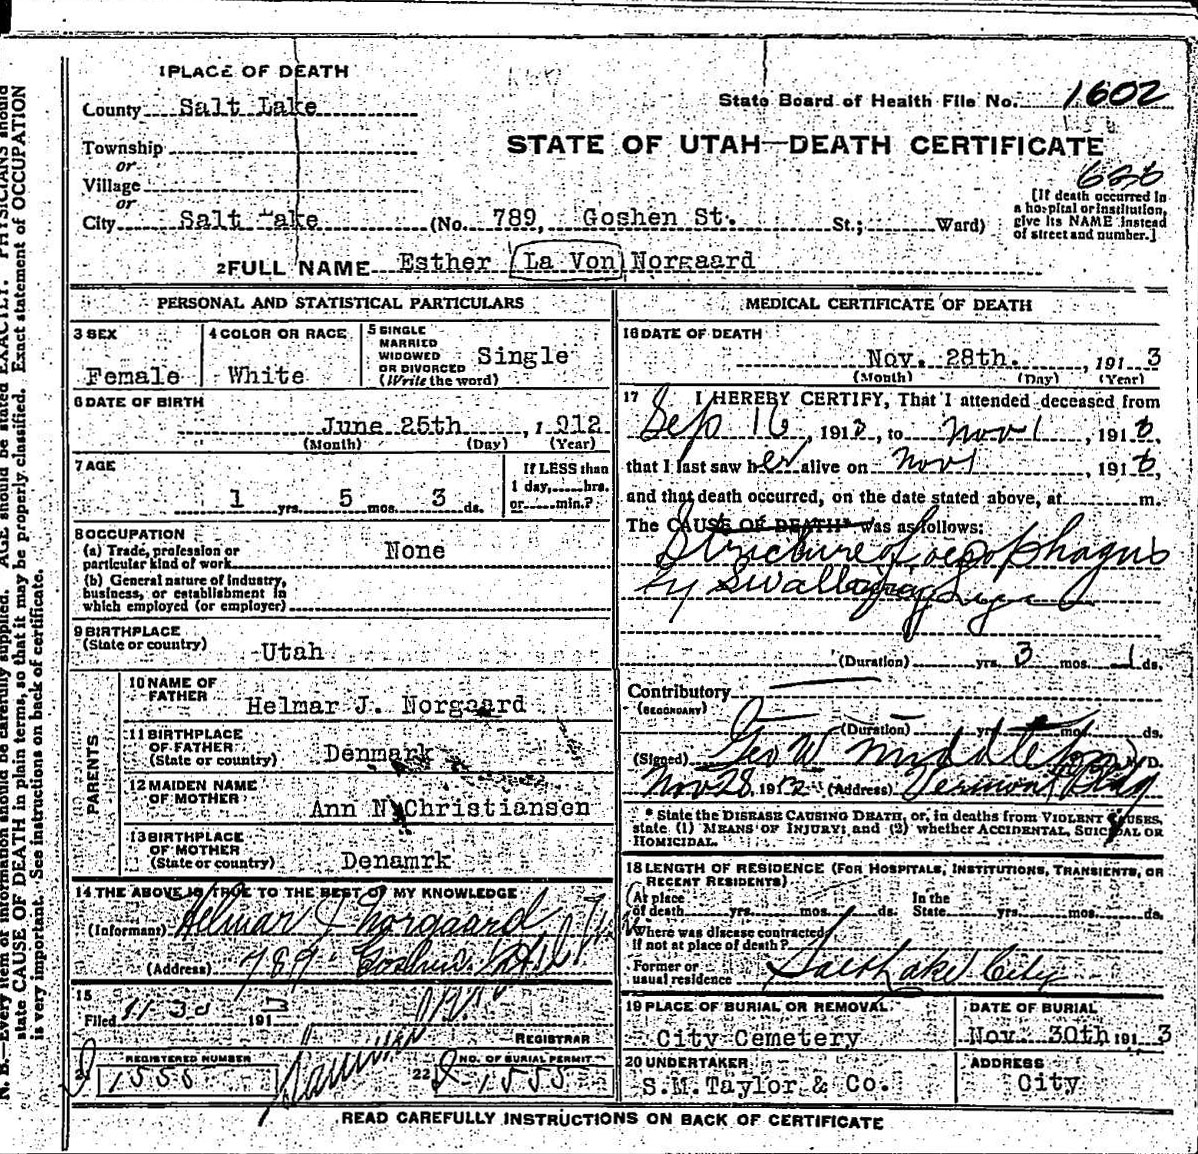 1 PLACE OF DEATH
County Salt Lake
State Board of Health File No. 1602
Township
or
Village
or
STATE OF UTAH—DEATH CERTIFICATE
City Salt Lake (No. 789, Goshen St. St.; Ward)
[If death occurred in
a hospital or institution,
give its NAME instead
of street and number.]
2 FULL NAME Esther La Von Norgaard
PERSONAL AND STATISTICAL PARTICULARS
3 SEX
Female
4 COLOR OR RACE
White
5 SINGLE
MARRIED
WIDOWED
OR DIVORCED
(Write the word)
Single
6 DATE OF BIRTH
June 25th , 1 912
(Month) (Day) (Year)
7 AGE
1 yrs. 5 mos. 3 ds.
If LESS than
1 day, hrs.
or min.?
8 OCCUPATION
(a) Trade, profession or
particular kind of work None
(b) General nature of industry,
business, or establishment in
which employed (or employer)
9 BIRTHPLACE
(State or country) Utah
PARENTS
10 NAME OF
FATHER Helmar J. Norgaard
11 BIRTHPLACE
OF FATHER
(State or country) Denmark
12 MAIDEN NAME
OF MOTHER Ann N Christiansen
13 BIRTHPLACE
OF MOTHER
(State or country) Denamrk
14 THE ABOVE IS TRUE TO THE BEST OF MY KNOWLEDGE
(Informant) Helmar J Norgaard
(Address) 789 Goshen
15
Filed 11 30 1913
REGISTRAR
REGISTERED NUMBER
1555
22 NO. OF BURIAL PERMIT
1555
MEDICAL CERTIFICATE OF DEATH
16 DATE OF DEATH
Nov. 28th. , 191 3
(Month) (Day) (Year)
17 I HEREBY CERTIFY, That I attended deceased from
Sep 16 , 1913 , to Nov 1 , 191
that I last saw her alive on Nov 1 , 191
and that death occurred, on the date stated above, at m.
The CAUSE OF DEATH* was as follows:
Stricture of oesophagus
by Swallowing Lye
(Duration) yrs. 3 mos. 1 ds.
Contributory
(SECONDARY)
(Duration) yrs. mos. ds.
(Signed) Geo W Middleton M.D.
Nov 28, 1913 (Address) Vermont Bldg
* State the DISEASE CAUSING DEATH, or, in deaths from VIOLENT CAUSES,
state (1) MEANS OF INJURY; and (2) whether ACCIDENTAL, SUICIDAL OR
HOMICIDAL.
18 LENGTH OF RESIDENCE (FOR HOSPITALS, INSTITUTIONS, TRANSIENTS, OR
RECENT RESIDENTS)
At place
of death yrs. mos. ds.
In the
State yrs. mos. ds.
Where was disease contracted,
if not at place of death?
Former or
usual residence Salt Lake City
19 PLACE OF BURIAL OR REMOVAL
City Cemetery
DATE OF BURIAL
Nov. 30th 191 3
20 UNDERTAKER
S.M. Taylor & Co.
ADDRESS
City
READ CAREFULLY INSTRUCTIONS ON BACK OF CERTIFICATE
N. B.—Every item of information should be carefully supplied. AGE should be stated EXACTLY. PHYSICIANS should
state CAUSE OF DEATH in plain terms, so that it may be properly classified. Exact statement of OCCUPATION
is very important. See instructions on back of certificate.